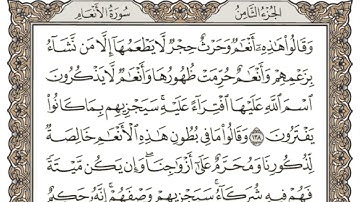 الجُزءُ الثَّامِنُ
سُورَةُ الأَنْعَامِ
وَقَالُوا۟ هَٰذِهِۦٓ أَنْعَٰمٌ وَحَرْثٌ حِجْرٌ لَّا يَطْعَمُهَآ إِلَّا مَن نَّشَآءُ
بِزَعْمِهِمْ وَأَنْعَٰمٌ حُرِّمَتْ ظُهُورُهَا وَأَنْعَٰمٌ لَّا يَذْكُرُونَ
ٱسْمَ ٱللَّهِ عَلَيْهَا ٱفْتِرَآءً عَلَيْهِ ۚ سَيَجْزِيهِم بِمَا كَانُوا۟
يَفْتَرُونَ ١٣٨ وَقَالُوا۟ مَا فِى بُطُونِ هَٰذِهِ ٱلْأَنْعَٰمِ خَالِصَةٌ
لِّذُكُورِنَا وَمُحَرَّمٌ عَلَىٰٓ أَزْوَٰجِنَا ۖ وَإِن يَكُن مَّيْتَةً
فَهُمْ فِيهِ شُرَكَآءُ ۚ سَيَجْزِيهِمْ وَصْفَهُمْ ۚ إِنَّهُۥ حَكِيمٌ